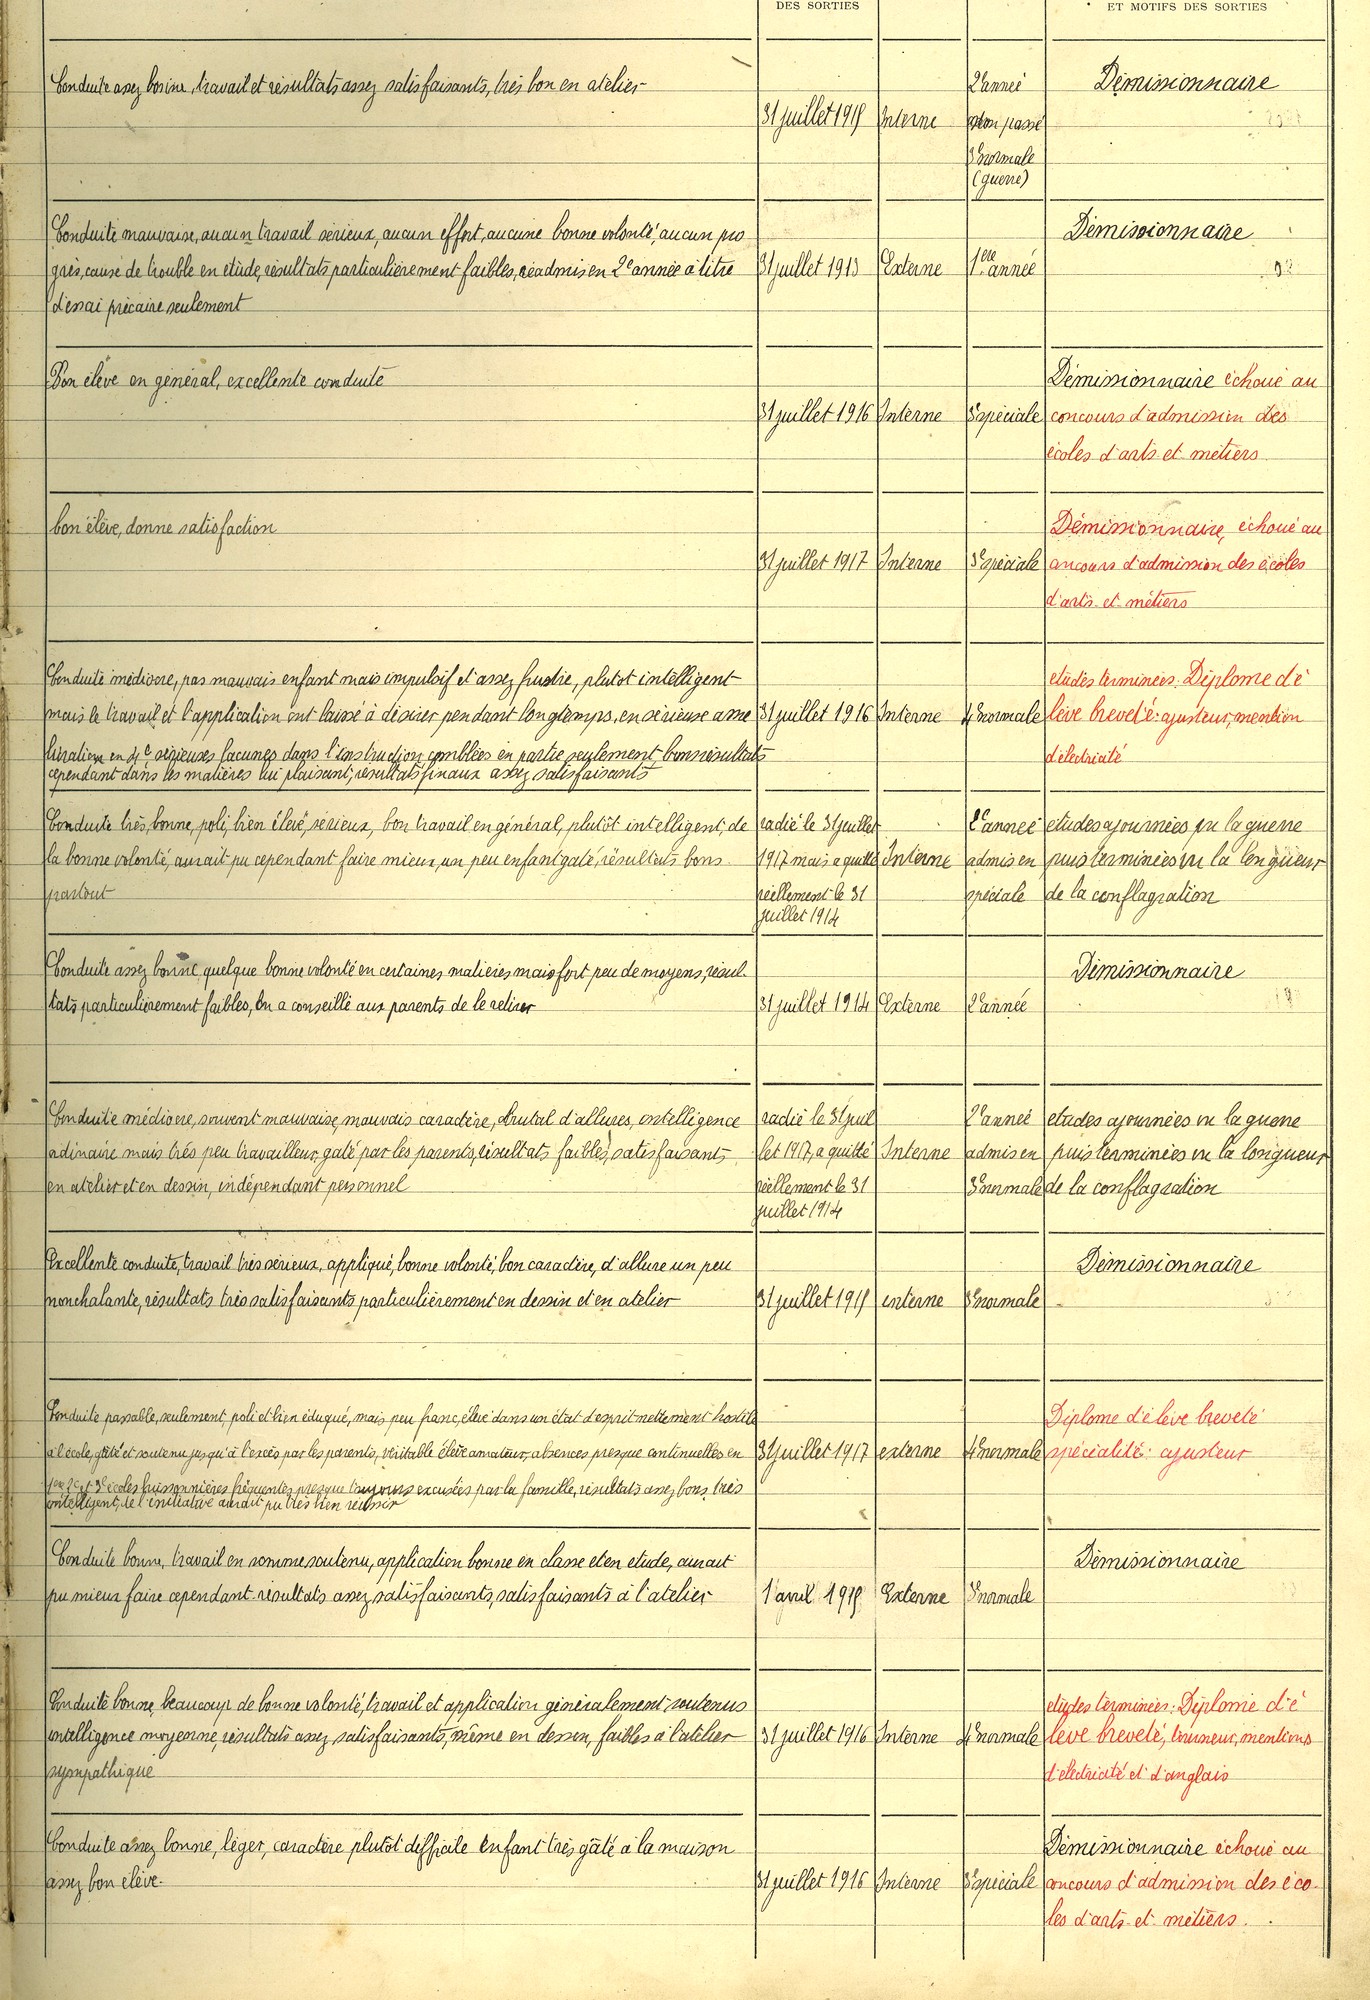 DES SORTIES
ET MOTIFS DES SORTIES
Conduite assez bonne, travail et résultats assez satisfaisants, très bon en atelier
31 juillet 1915
Interne
2e année
non passé
3e normale
(guerre)
Démissionnaire
Conduite mauvaise, aucun travail sérieux, aucun effort, aucune bonne volonté, aucun pro
grès, cause de trouble en étude, résultats particulièrement faibles, réadmis en 2e année à titre
d'essai précaire seulement
31 juillet 1913
Externe
1ère année
Démissionnaire
Bon élève en général, excellente conduite
31 juillet 1916
Interne
3e spéciale
Démissionnaire échoué au
concours d'admission des
écoles d'arts et métiers
bon élève, donne satisfaction
31 juillet 1917
Interne
3e spéciale
Démissionnaire, échoué au
concours d'admission des écoles
d'arts et métiers
Conduite médiocre, pas mauvais enfant mais impulsif et assez frustre, plutôt intelligent
mais le travail et l'application ont laissé à désirer pendant longtemps, en sérieuse amé
lioration en 4e sérieuses lacunes dans l'instruction comblées en partie seulement, bons résultats
cependant dans les matières lui plaisant, résultats finaux assez satisfaisants
31 juillet 1916
Interne
4e normale
études terminées: Diplome d'é
lève breveté: ajusteur, mention
d'électricité
Conduite très bonne, poli, bien élevé, sérieux, bon travail en général, plutôt intelligent, de
la bonne volonté, aurait pu cependant faire mieux, un peu enfant gaté, résultats bons
partout
radié le 31 juillet
1917 mais a quitté
réellement le 31
juillet 1914
Interne
2e année
admis en
spéciale
études ajournées vu la guerre
puis terminées vu la longueur
de la conflagration
Conduite assez bonne, quelque bonne volonté en certaines matières mais fort peu de moyens, résul-
tats particulièrement faibles, On a conseillé aux parents de le retirer
31 juillet 1914
Externe
2e année
Démissionnaire
Conduite médiocre, souvent mauvaise, mauvais caractère, brutal d'allures, intelligence
ordinaire mais très peu travailleur, gaté par les parents, résultats faibles, satisfaisants
en atelier et en dessin, indépendant personnel
radié le 31 juil
let 1917, a quitté
réellement le 31
juillet 1914
Interne
2e année
admis en
3e normale
études ajournées vu la guerre
puis terminées vu la longueur
de la conflagration
Excellente conduite, travail très sérieux, appliqué, bonne volonté, bon caractère, d'allure un peu
nonchalante, résultats très satisfaisants particulièrement en dessin et en atelier
31 juillet 1915
interne
3e normale
Démissionnaire
Conduite passable, seulement, poli et bien éduqué, mais peu franc, élevé dans un état d'esprit nettement hostile
à l'école, gâté et soutenu jusqu'à l'excès par les parents, véritable élève amateur, absences presque continuelles en
1ere, 2e et 3e écoles buissonnières fréquentes presque toujours excusées par la famille, résultats assez bons, très
intelligent, de l'initiative aurait pu très bien réussir
31 juillet 1917
externe
4e normale
Diplome d'élève breveté
spécialité: ajusteur
Conduite bonne, travail en somme soutenu, application bonne en classe et en étude, aurait
pu mieux faire cependant résultats assez satisfaisants, satisfaisants à l'atelier
1 avril 1915
Externe
3e normale
Démissionnaire
Conduite bonne, beaucoup de bonne volonté, travail et application généralement soutenus
intelligence moyenne, résultats assez satisfaisants, même en dessin, faibles à l'atelier
sympathique
31 juillet 1916
Interne
4e normale
études terminées: Diplome d'é
lève breveté, tourneur, mentions
d'électricité et d'anglais
Conduite assez bonne, léger, caractère plutôt difficile enfant très gâté à la maison
assez bon élève.
31 juillet 1916
Interne
3e spéciale
Démissionnaire échoué au
concours d'admission des éco-
les d'arts et métiers.